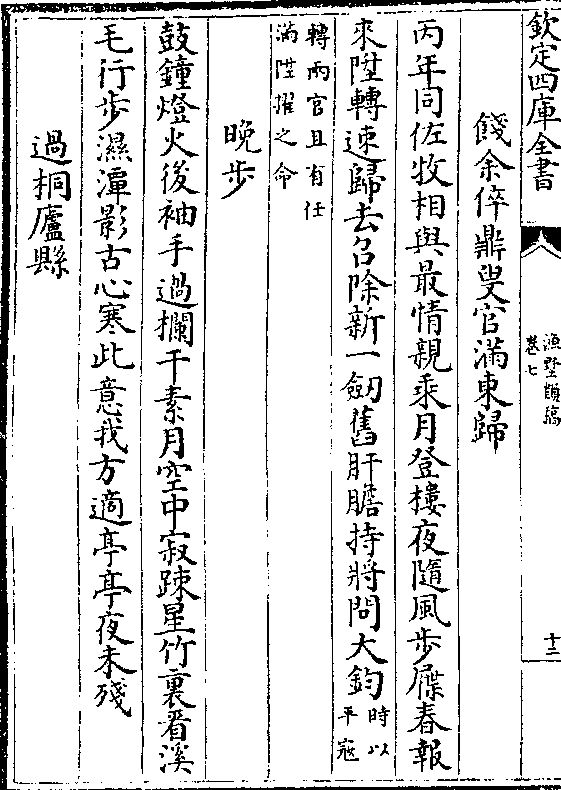 欽定四庫全書
漁墅類稿
卷七
十二
餞余倅鼎叟官滿東歸
丙年同佐牧相與最情親乘月登樓夜隨風步屧春報
來陞轉速歸去召除新一劒舊肝膽持將問大鈞時以
平寇
轉兩官且有任
滿陞擢之命
晚步
鼓鐘燈火後袖手過欄干素月空中寂踈星竹裏看溪
毛行步濕潭影古心寒此意我方適亭亭夜未殘
過桐廬縣